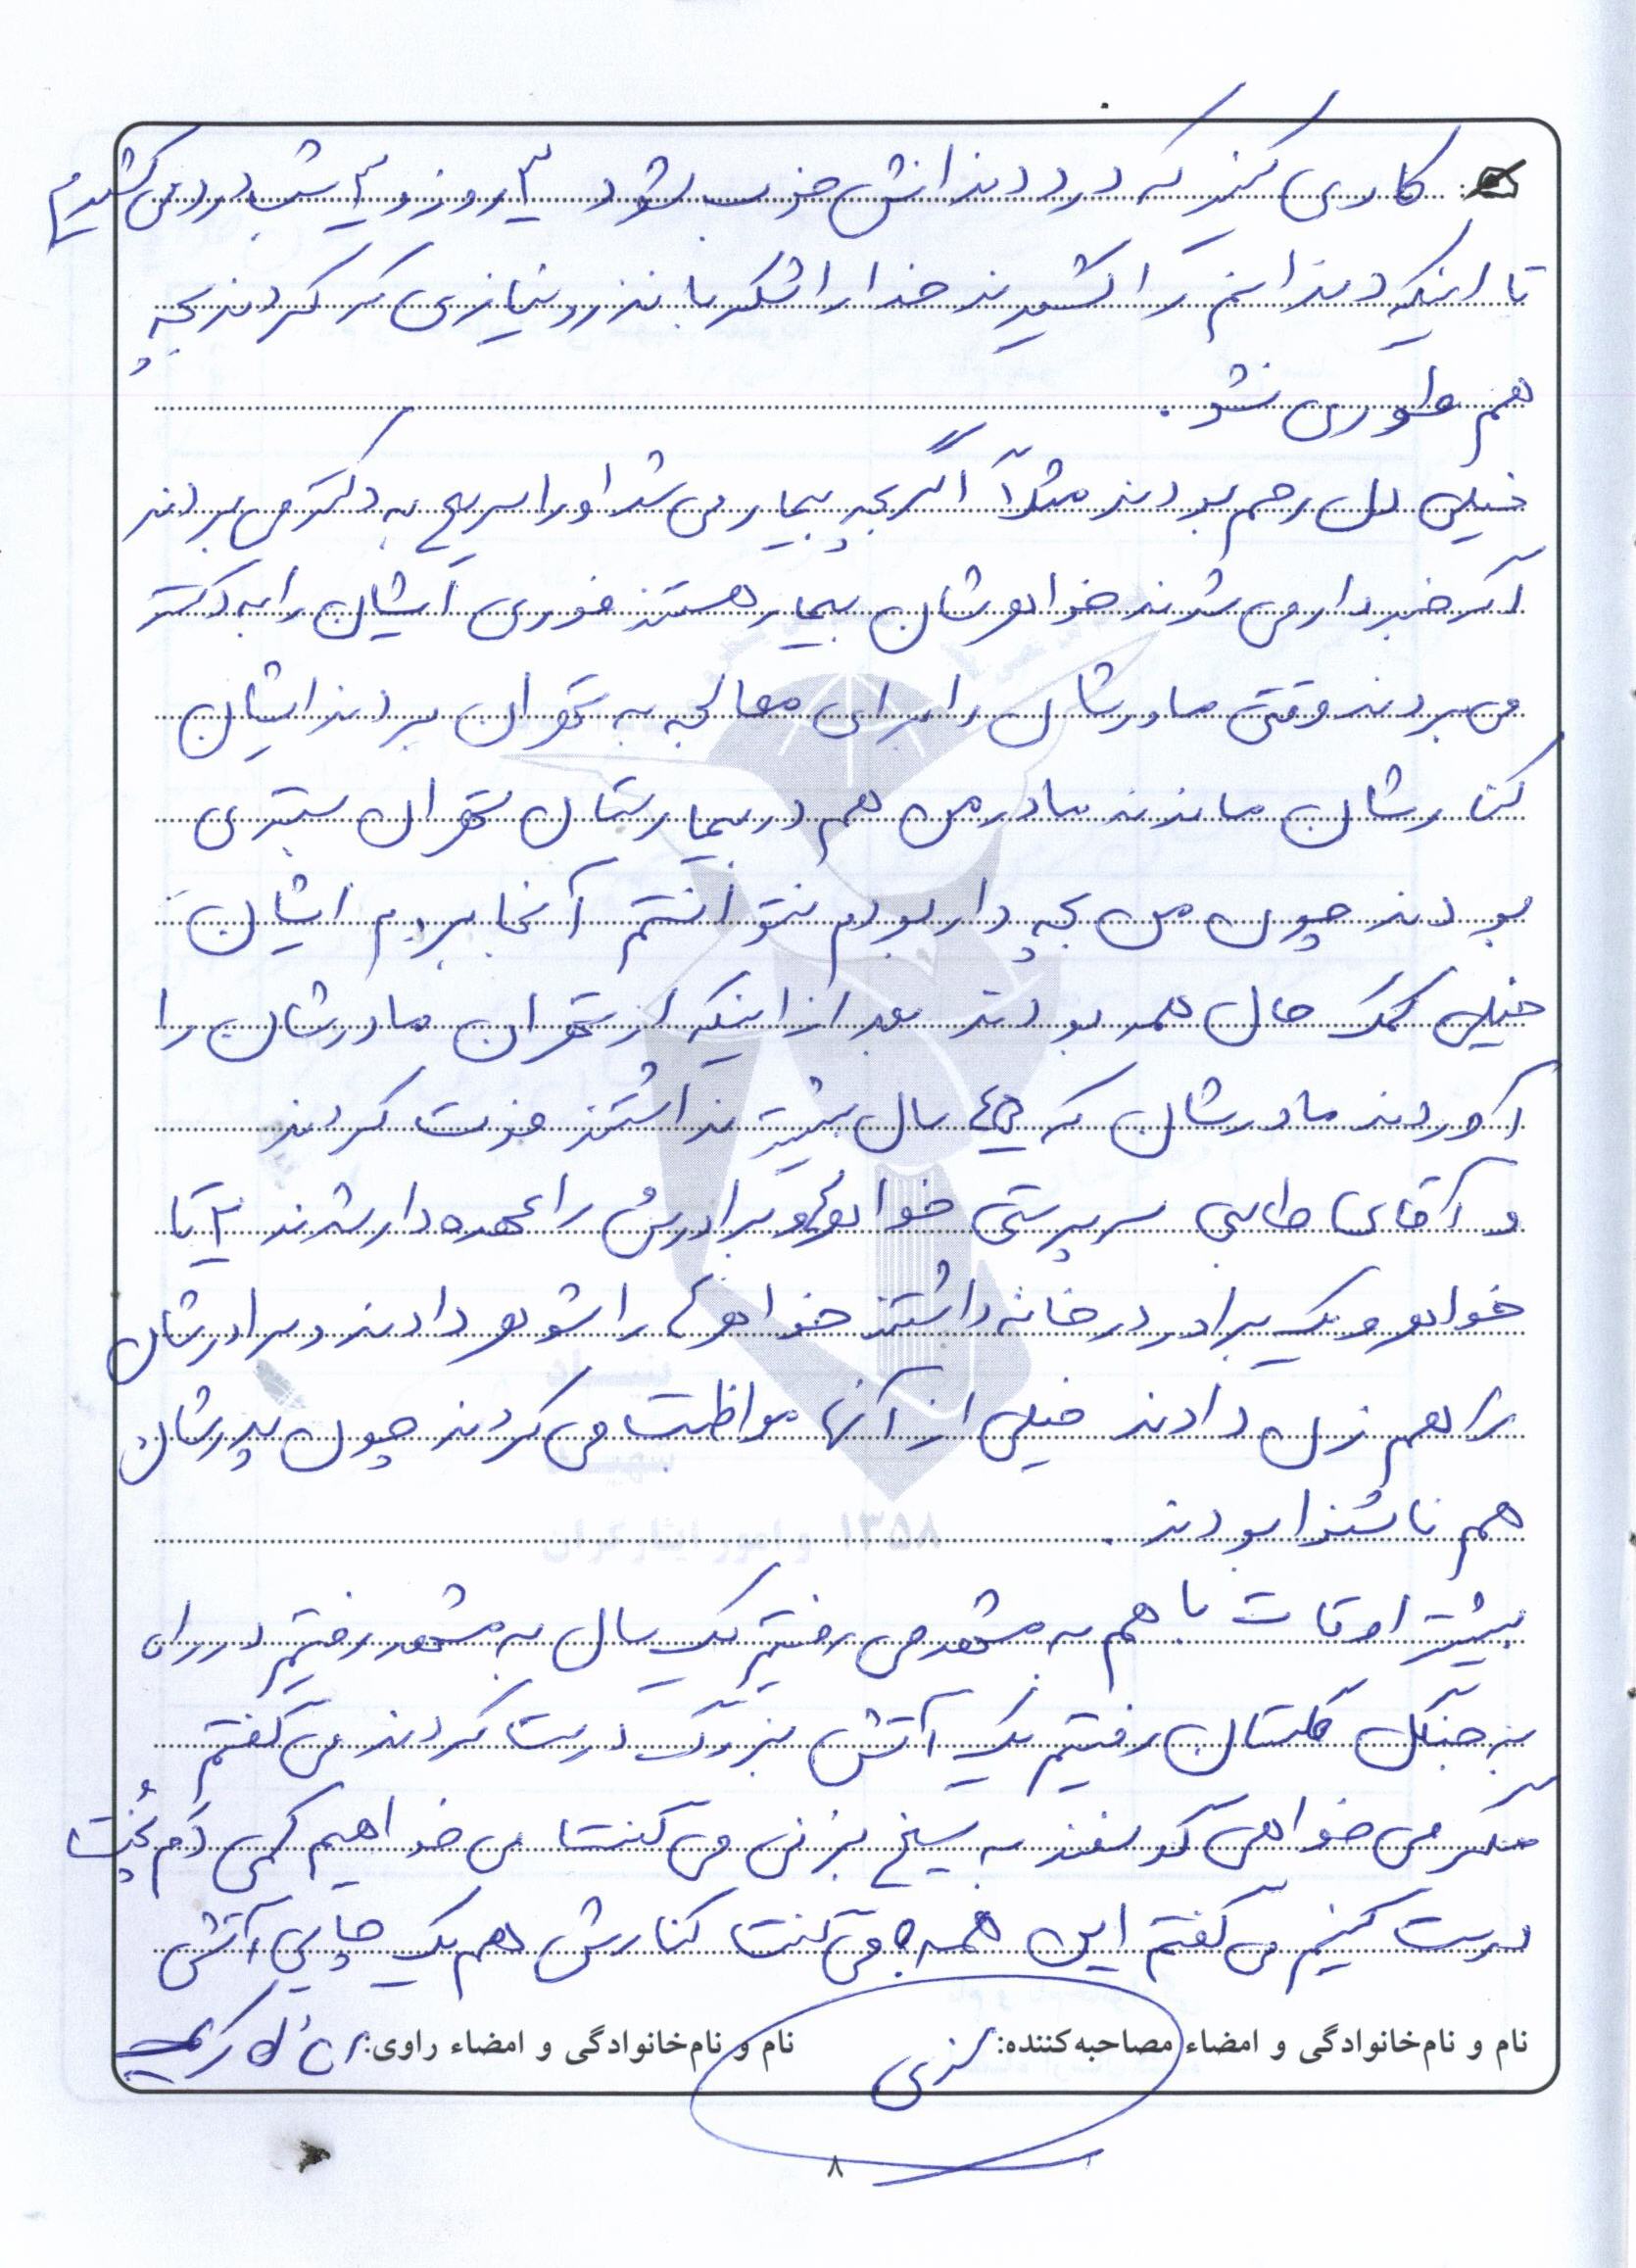 کاری کنیز که درد دندانش خوب بشود ۳ روز و ۳ شب درد می کشیدم
تا اینکه دندانم را کشیدند خدا را شکر با نذر و نیازی که کردند بچه
هم طوری نشد.
خیلی دل رحم بودند مثلاً اگر بچه بیمار می شد او را سریع به دکتر می بردند
اگر خبردار می شدند خواهرشان بیمار هستند فوری ایشان را به دکتر
می بردند وقتی مادرشان را برای معالجه به تهران بردند ایشان
کنارشان ماندند مادر من هم در بیمارستان تهران بستری
بودند چون من بچه دار بودم نتوانستم آنجا بروم ایشان
خیلی کمک حال همه بودند بعد از اینکه از تهران مادرشان را
آوردند مادرشان که ۴۵ سال بیشتر نداشتند فوت کردند
و آقای طالبی سرپرستی خواهر و برادرش را عهده دار شدند ۳ تا
خواهر و یک برادر در خانه داشتند خواهرها را شوهر دادند و برادرشان
را هم زن دادند خیلی از آنها مواظبت می کردند چون پدرشان
هم ناشنوا بودند.
بیشتر اوقات با هم به مشهد می رفتیم یک سال به مشهد رفتیم در راه
به جنگل گلستان رفتیم یک آتش بزرگ درست کردند می گفتم
مگر می خواهی گوسفند به سیخ بزنی می گفت می خواهیم کمی دَم پُخت
درست کنیم می گفتم این همه؟ می گفت کنارش هم یک چایی آتشی
نام و نام‌خانوادگی و امضاء مصاحبه‌کننده:
نام و نام‌خانوادگی و امضاء راوی:
۸